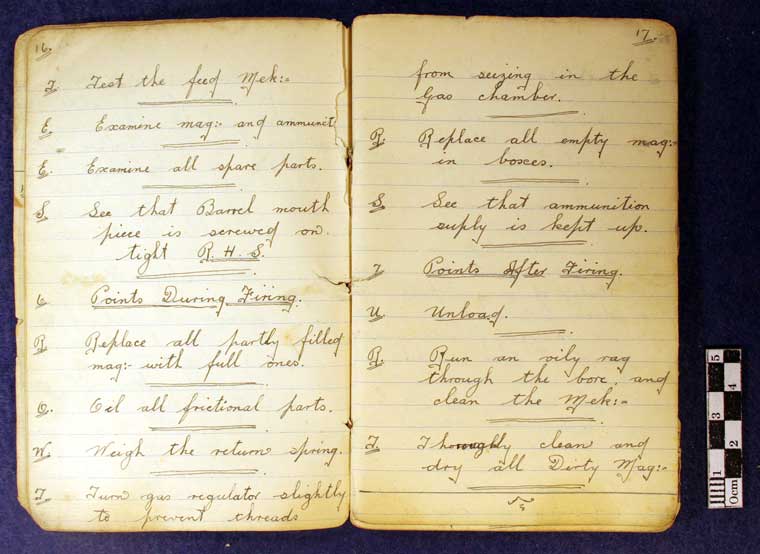 16.
T. Test the feed Mek:-
E. Examine mag:- and ammunit
E. Examine all spare parts.
S. See that Barrel mouth
piece is screwed on.
tight R.H.S.
6 Points During Firing.
R. Replace all partly filled
mag:- with full ones.
O. Oil all frictional parts.
W. Weigh the return spring.
T. Turn gas regulator slightly
to prevent threads
17.
from seizing in the
Gas chamber.
R. Replace all empty mag:-
in boxes.
S. See that ammunition
suply is kept up.
7 Points After Firing.
U. Unload.
R. Run an oily rag
through the bore, and
clean the Mek:-
T. Thoroughly clean and
dry all Dirty Mag:-
0cm 1 2 3 4 5